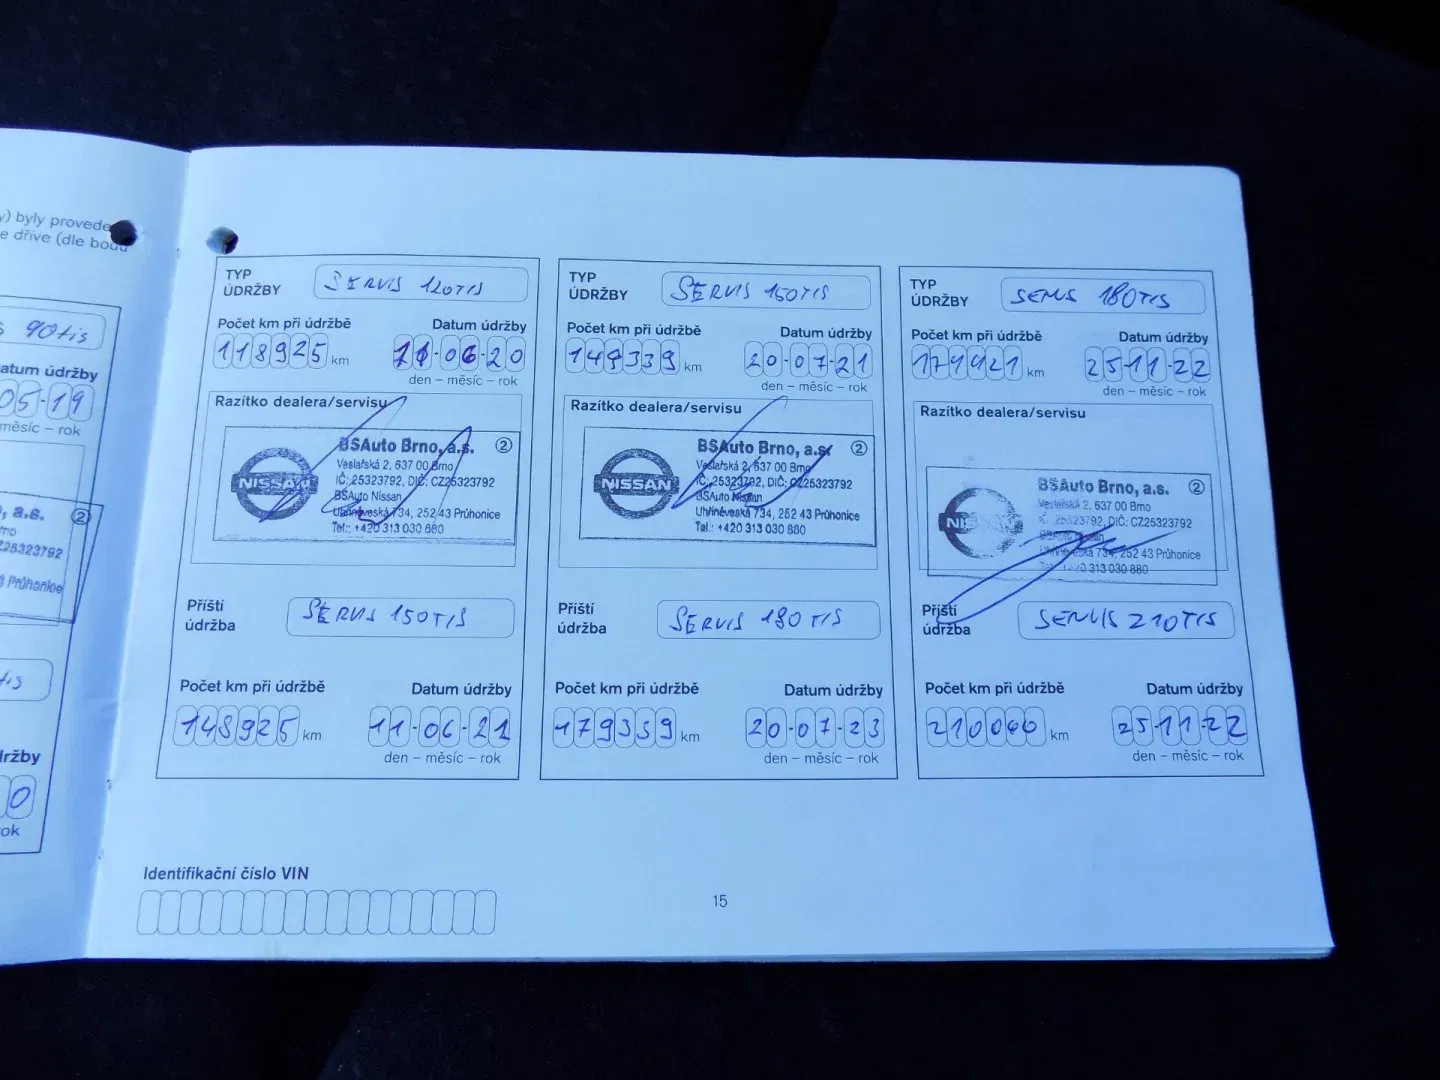 y) byly provede
e dříve (dle bodu
S 90tis
atum údržby
05-19
měsíc – rok
, a.s. 2
rno
25323792
3 Průhonice
tis
držby
0
rok
TYP
ÚDRŽBY
SERVIS 120TIS
Počet km při údržbě Datum údržby
118925 km 11-06-20
den – měsíc – rok
Razítko dealera/servisu
BSAuto Brno, a.s. 2
Veslařská 2, 637 00 Brno
NISSAN
IČ: 25323792, DIČ: CZ25323792
BSAuto Nissan
Uhříněveská 734, 252 43 Průhonice
Tel.: +420 313 030 880
Příští
údržba
SERVIS 150TIS
Počet km při údržbě Datum údržby
148925 km 11-06-21
den – měsíc – rok
TYP
ÚDRŽBY
SERVIS 150TIS
Počet km při údržbě Datum údržby
149339 km 20-07-21
den – měsíc – rok
Razítko dealera/servisu
BSAuto Brno, a.s. 2
Veslařská 2, 637 00 Brno
NISSAN
IČ: 25323792, DIČ: CZ25323792
BSAuto Nissan
Uhříněveská 734, 252 43 Průhonice
Tel.: +420 313 030 880
Příští
údržba
SERVIS 180TIS
Počet km při údržbě Datum údržby
179339 km 20-07-23
den – měsíc – rok
TYP
ÚDRŽBY
SERVIS 180TIS
Počet km při údržbě Datum údržby
km 25-11-22
den – měsíc – rok
Razítko dealera/servisu
BSAuto Brno, a.s. 2
Veslařská 2, 637 00 Brno
IČ: 25323792, DIČ: CZ25323792
BSAuto Nissan
Uhříněveská 734, 252 43 Průhonice
Tel.: +420 313 030 880
Příští
údržba
SERVIS 210TIS
Počet km při údržbě Datum údržby
210000 km 25-11-22
den – měsíc – rok
Identifikační číslo VIN
15